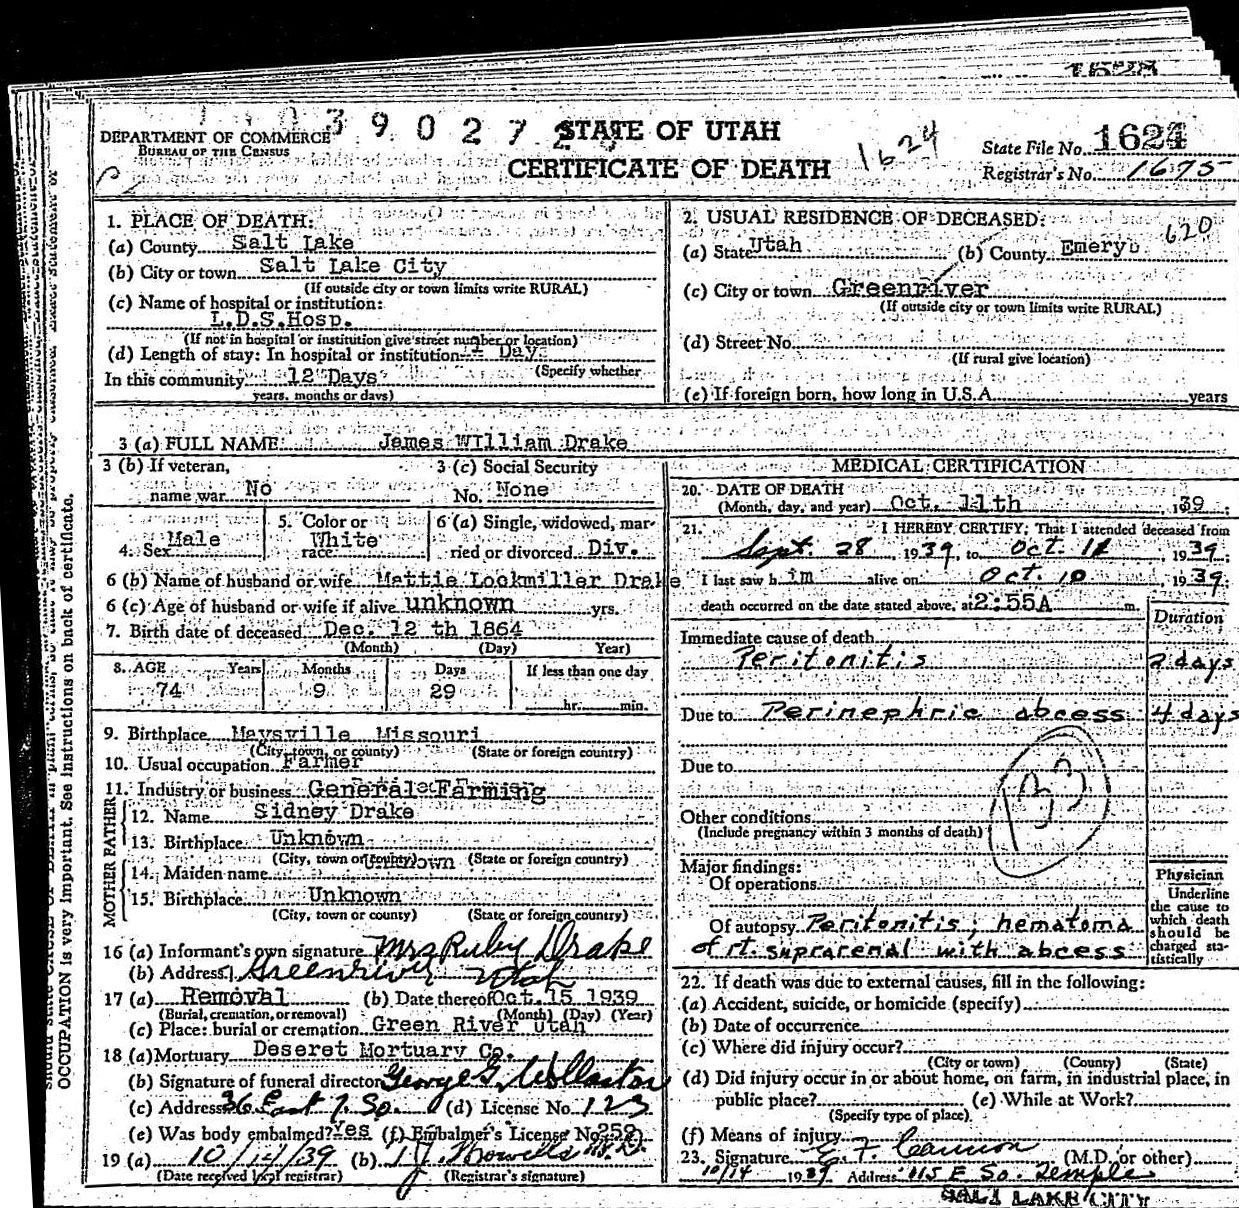 1528
39027
DEPARTMENT OF COMMERCE
BUREAU OF THE CENSUS
STATE OF UTAH
CERTIFICATE OF DEATH
1624
State File No. 1624
Registrar's No. 1675
1. PLACE OF DEATH:
(a) County Salt Lake
(b) City or town Salt Lake City
(If outside city or town limits write RURAL)
(c) Name of hospital or institution:
L.D.S.Hosp.
(If not in hospital or institution give street number or location)
(d) Length of stay: In hospital or institution 1 Day
(Specify whether
In this community 12 Days
years, months or days)
2. USUAL RESIDENCE OF DECEASED:
620
(a) State Utah (b) County Emery
(c) City or town Greenriver
(If outside city or town limits write RURAL)
(d) Street No.
(If rural give location)
(e) If foreign born, how long in U.S.A. years
3 (a) FULL NAME: James WIlliam Drake
3 (b) If veteran, name war No
3 (c) Social Security No. None
4. Sex Male
5. Color or race White
6 (a) Single, widowed, married or divorced Div.
6 (b) Name of husband or wife Mattie Lockmiller Drake
6 (c) Age of husband or wife if alive unknown yrs.
7. Birth date of deceased Dec. 12 th 1864
(Month) (Day) Year)
8. AGE Years Months Days If less than one day
74 9 29 hr. min.
9. Birthplace Maysville Missouri
(City, town, or county) (State or foreign country)
10. Usual occupation Farmer
11. Industry or business General Farming
FATHER
12. Name Sidney Drake
13. Birthplace Unknown
(City, town or county) (State or foreign country)
MOTHER
14. Maiden name Unknown
15. Birthplace Unknown
(City, town or county) (State or foreign country)
16 (a) Informant's own signature Mrs Ruby Drake
(b) Address Greenriver Utah
17 (a) Removal (b) Date thereof Oct. 15 1939
(Burial, cremation, or removal) (Month) (Day) (Year)
(c) Place: burial or cremation Green River Utah
18 (a) Mortuary Deseret Mortuary Co.
(b) Signature of funeral director George G. Wollaston
(c) Address 36 East 7. So. (d) License No. 123
(e) Was body embalmed? Yes (f) Embalmer's License No. 259
19 (a) 10/14/39 (b) M.D.
(Date received local registrar) (Registrar's signature)
MEDICAL CERTIFICATION
20. DATE OF DEATH
(Month, day, and year) Oct. 11th, 139
21. I HEREBY CERTIFY: That I attended deceased from
Sept. 28, 1939, to Oct. 11, 1939;
I last saw h im alive on Oct. 10, 1939;
death occurred on the date stated above, at 2:55A m.
Duration
Immediate cause of death
Peritonitis 2 days
Due to Perinephric abcess 4 days
Due to
133
Other conditions
(Include pregnancy within 3 months of death)
Major findings:
Of operations
Of autopsy Peritonitis; hematoma
of rt. suprarenal with abcess
Physician
Underline
the cause to
which death
should be
charged sta-
tistically
22. If death was due to external causes, fill in the following:
(a) Accident, suicide, or homicide (specify)
(b) Date of occurrence
(c) Where did injury occur?
(City or town) (County) (State)
(d) Did injury occur in or about home, on farm, in industrial place, in
public place? (e) While at Work?
(Specify type of place)
(f) Means of injury
23. Signature E. F. Cannon (M.D. or other)
10/14 1939 Address 115 E So. Temple
SALT LAKE CITY
OCCUPATION is very important. See instructions on back of certificate.